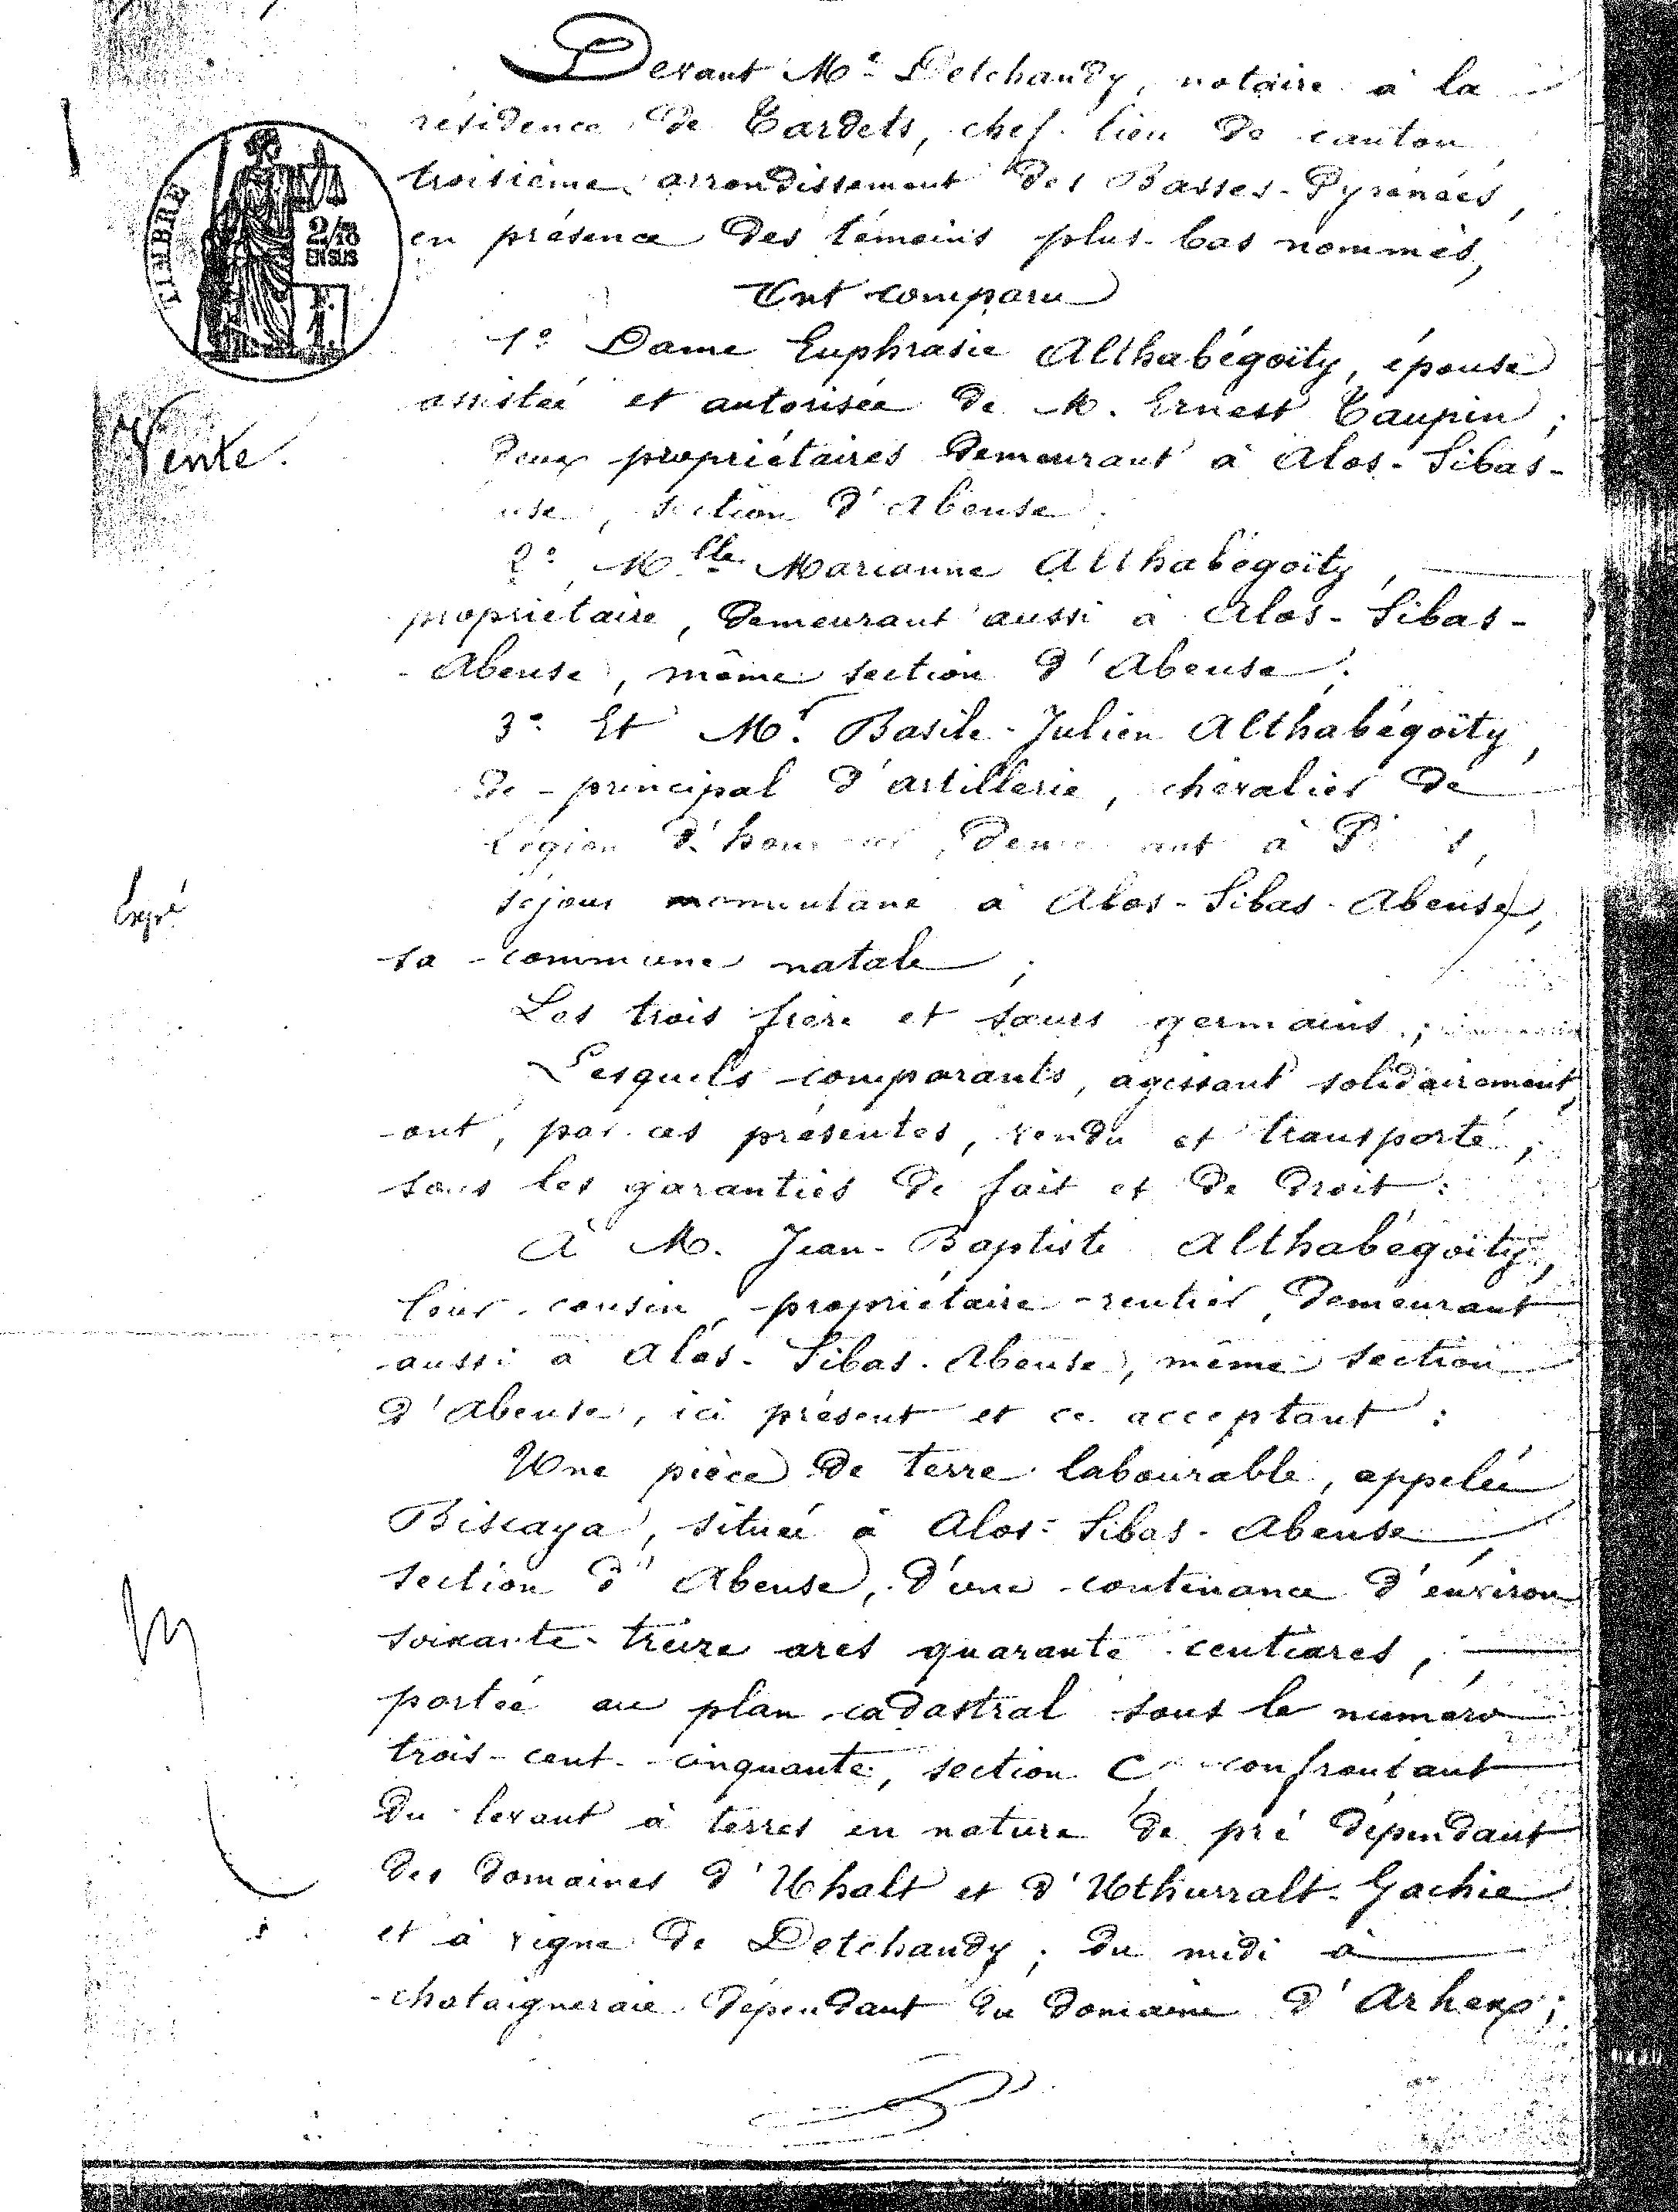 Devant Me Detchandy, notaire à la
résidence de Tardets, chef-lieu de canton,
troisième arrondissement des Basses-Pyrénées,
en présence des témoins plus-bas nommés,
Ont comparu
1° Dame Euphrasie Althabégoïty, épouse
assistée et autorisée de M. Ernest Taupin ;
deux propriétaires demeurant à Alos-Sibas-
use, section d'Abense ;
2° Mlle Marianne Althabégoïty,
propriétaire, demeurant aussi à Alos-Sibas-
-Abense, même section d'Abense ;
3° Et Mr Basile-Julien Althabégoïty,
de-principal d'artillerie, chevalier de
Légion d'hon, demeurant à
séjour momentané à Alos-Sibas-Abense,
sa commune natale ;
Les trois frère et sœurs germains ;
Lesquels comparants, agissant solidairement,
ont, par ces présentes, vendu et transporté,
sous les garanties de fait et de droit :
À M. Jean-Baptiste Althabégoïty,
leur cousin, propriétaire-rentier, demeurant
aussi à Alos-Sibas-Abense, même section
d'Abense, ici présent et ce acceptant :
Une pièce de terre labourable, appelée
Biscaya, située à Alos-Sibas-Abense,
section d'Abense, d'une contenance d'environ
soixante-treize ares quarante centiares,
portée au plan cadastral sous le numéro
trois-cent-cinquante, section C, confrontant
du levant à terres en nature de pré dépendant
des domaines d'Uhalt et d'Uthurralt-Gachie
et à vigne de Detchandy ; du midi à
chataigneraie dépendant du domaine d'Arhex ;
TIMBRE
2/10
EN SUS
Vente.
Expé